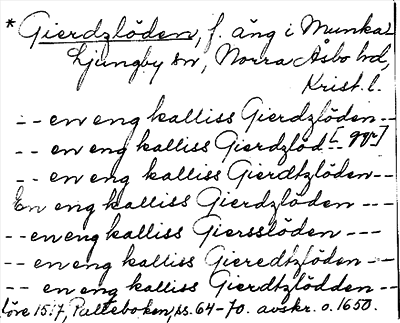 * Gierdzlöden, f. äng i Munka
Ljungby sn, Norra Åsbo hd,
Krist. l.
-- en eng kalliss Gierdzlöden --
-- en eng kalliss Gierdzlöd --
-- en eng kalliss Gierdtzlöden --
En eng kalliss Gierdzlöden ---
-- en eng kalliss Giersslöden ---
-- en eng kalliss Gieredtzlöden --
-- en eng kalliss Gierdtzlödden --
före 1517, Palteboken, ss. 64-70. avskr. o. 1650.